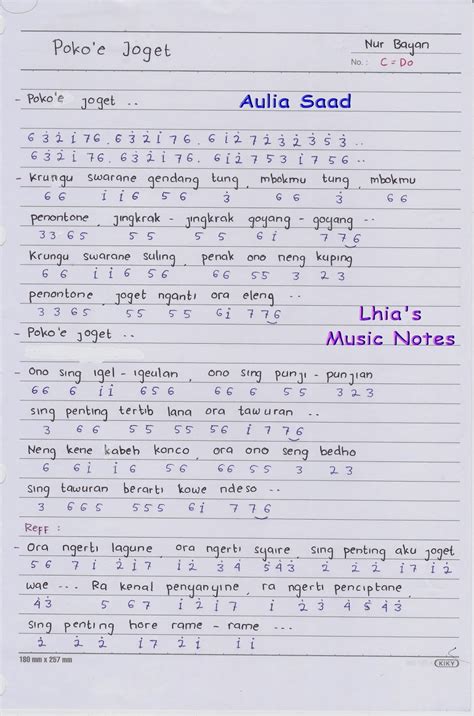 Poko'e Joget
Nur Bayan
No. : C = Do
- Poko'e joget ..
Aulia Saad
6 3̇ 2̇ i 7 6 . 6 3̇ 2̇ i 7 6 . 6 i 2̇ 7 2̇ 3̇ 2̇ 3̇ 5̇ 3̇ ..
6 3̇ 2̇ i 7 6 . 6 3̇ 2̇ i 7 6 . 6 i 2̇ 7 5 3 i 7 5 6 ..
- Krungu swarane gendang tung, mbokmu tung, mbokmu
6 6 i i 6 5 6 3̇ 6 6 3̇ 6 6
penontone, jingkrak - jingkrak goyang - goyang ..
3 3 6 5 5 5 5 5 6 i 7 7 6
Krungu swarane suling, penak ono neng kuping
6 6 i i 6 5 6 6 6 5 5 3 2 3
penontone, joget nganti ora eleng ..
3 3 6 5 5 5 5 5 6 i 7 7 6
Lhia's
Music Notes
- Poko'e joget ..
- Ono sing igel - igeulan, ono sing punji - punjian
6 6 6 i i 6 5 6 6 6 6 5 5 3 2 3
sing penting tertib lana ora tawuran ..
3 6 6 5 5 5 5 5 6 i 7 7 6
Neng kene kabeh konco, ora ono seng bedho
6 6 i i 6 5 6 6 6 5 5 3 2 3
Sing tawuran berarti kowe ndeso ..
3 6 6 5 5 5 5 6 i 7 7 6
Reff :
- Ora ngerti lagune, ora ngerti syaire, sing penting aku joget
5 6 7 i 2̇ i 7 i 2̇ 3̇ 4̇ 5̇ 4̇ 3̇ 2̇ 2̇ 2̇ i 7 i 2̇
wae ... Ra kenal penyanyine, ra ngerti penciptane,
4̇ 3̇ 5 6 7 i 2̇ i 7 i 2̇ 3̇ 4̇ 5̇ 4̇ 3̇
Sing penting hore rame - rame ...
2̇ 2̇ 2̇ i 7 2̇ i i i
180 mm x 257 mm
KIKY